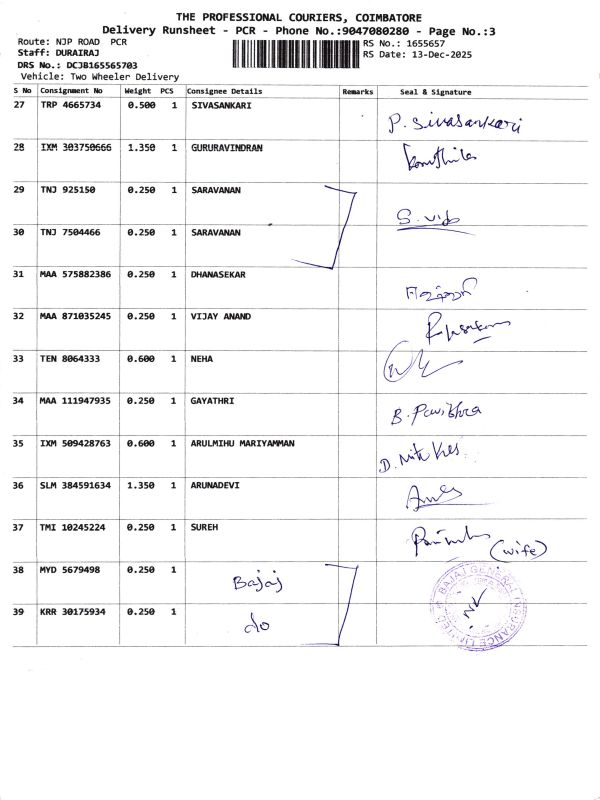 THE PROFESSIONAL COURIERS, COIMBATORE
Delivery Runsheet - PCR - Phone No.:9047080280 - Page No.:3
Route: NJP ROAD PCR
RS No.: 1655657
Staff: DURAIRAJ
RS Date: 13-Dec-2025
DRS No.: DCJB165565703
Vehicle: Two Wheeler Delivery
S No Consignment No Weight PCS Consignee Details Remarks Seal & Signature
27 TRP 4665734 0.500 1 SIVASANKARI P. Sivasankari
28 IXM 303750666 1.350 1 GURURAVINDRAN
29 TNJ 925150 0.250 1 SARAVANAN
30 TNJ 7504466 0.250 1 SARAVANAN
31 MAA 575882386 0.250 1 DHANASEKAR
32 MAA 871035245 0.250 1 VIJAY ANAND
33 TEN 8064333 0.600 1 NEHA
34 MAA 111947935 0.250 1 GAYATHRI B. Pavithra
35 IXM 509428763 0.600 1 ARULMIHU MARIYAMMAN
36 SLM 384591634 1.350 1 ARUNADEVI
37 TMI 10245224 0.250 1 SUREH (wife)
38 MYD 5679498 0.250 1 Bajaj
39 KRR 30175934 0.250 1 do
BAJAJ GENERAL INSURANCE LIMITED